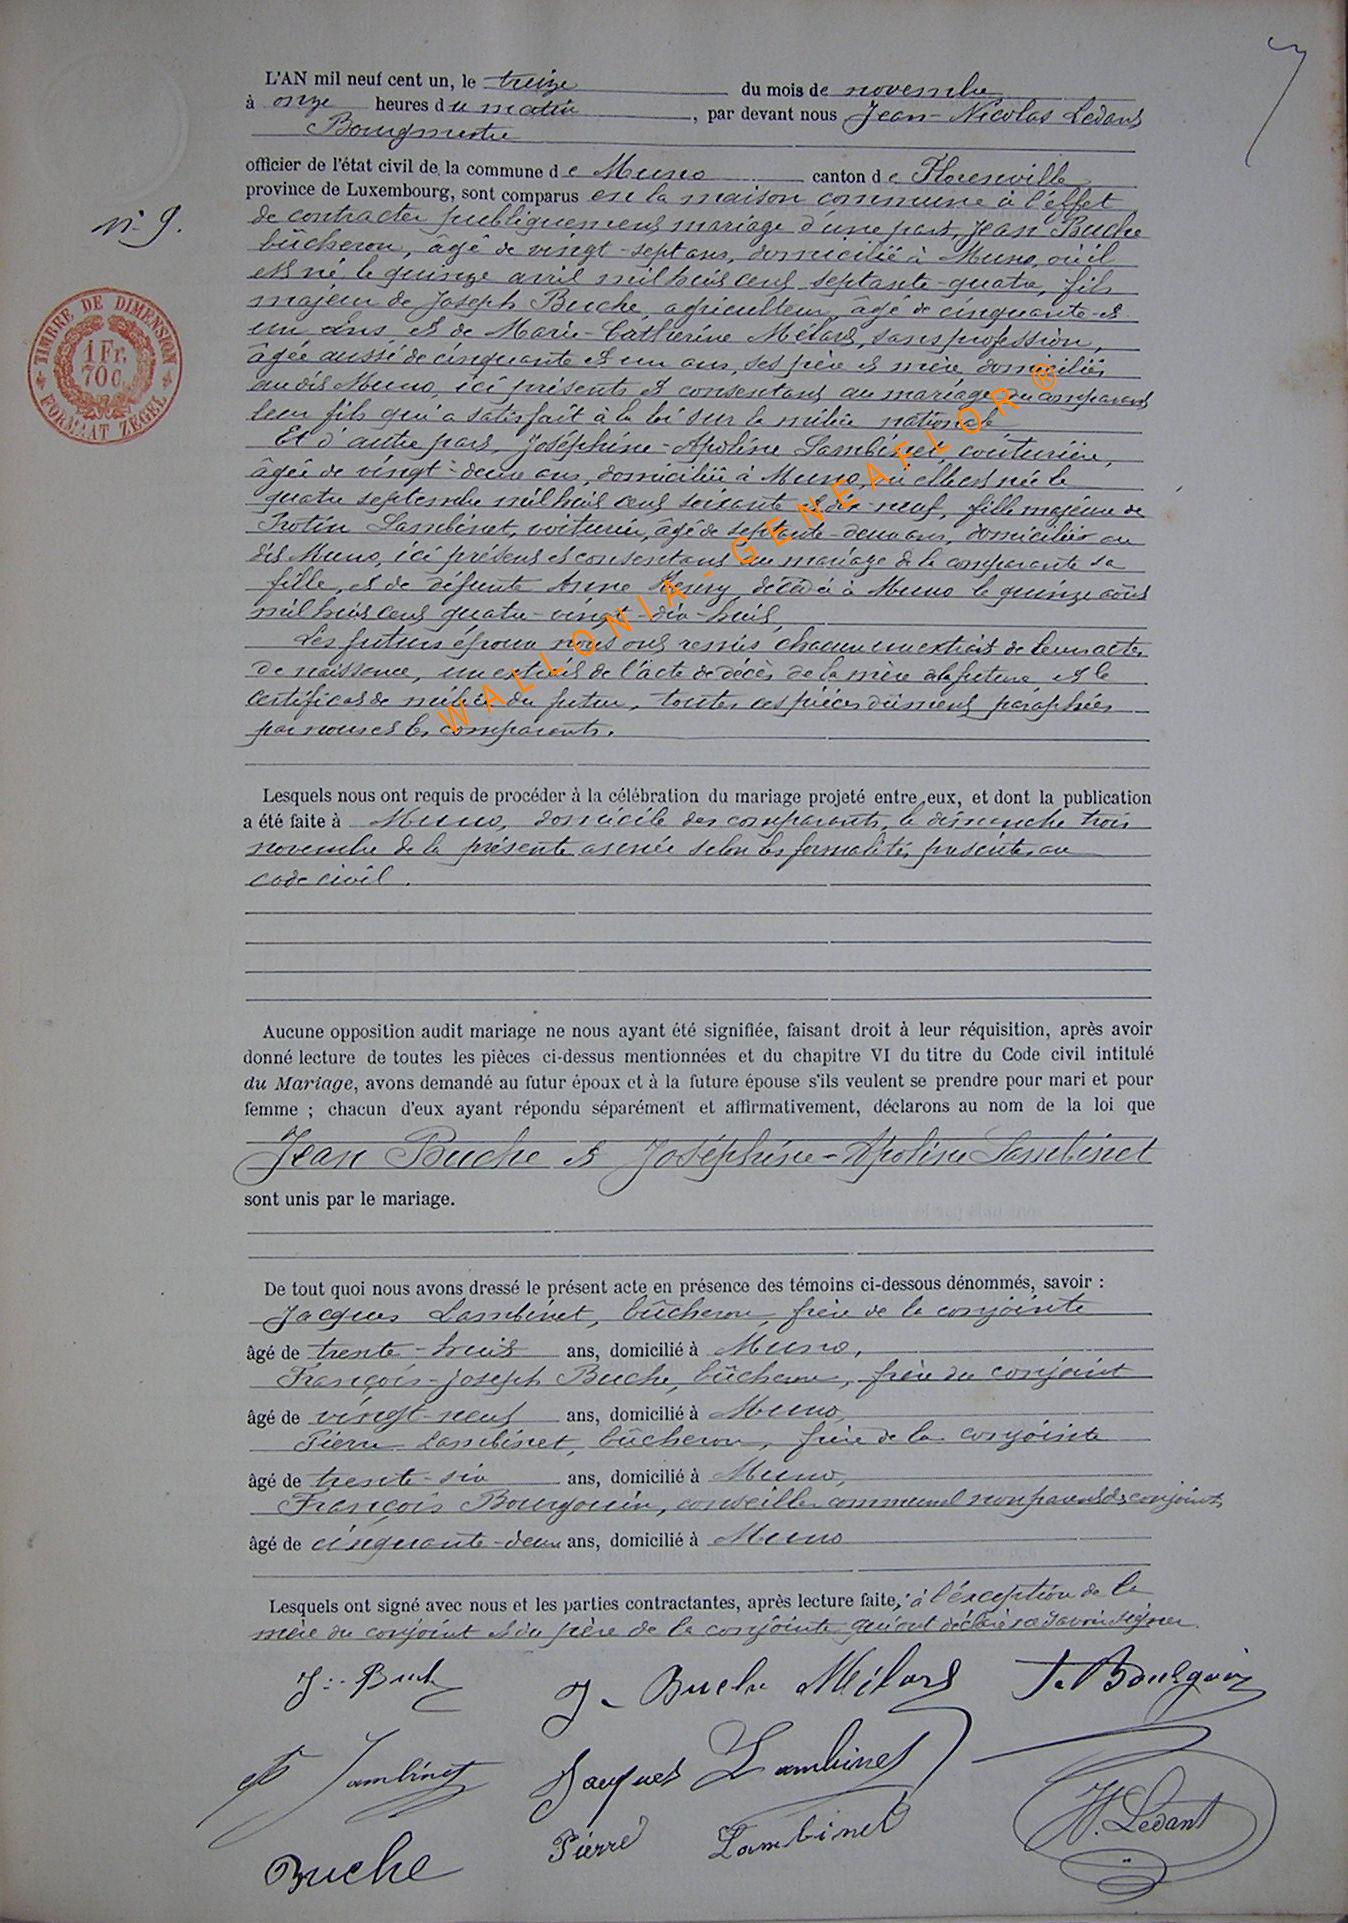 7
L'AN mil neuf cent un, le treize du mois de novembre
à onze heures du matin, par devant nous Jean-Nicolas Ledant
Bourgmestre
officier de l'état civil de la commune de Muno canton de Florenville
province de Luxembourg, sont comparus en la maison commune à l'effet
n° 9.
de contracter publiquement mariage d'une part, Jean Buche
bûcheron, âgé de vingt-sept ans, domicilié à Muno, où il
est né le quinze avril mil huit cent septante-quatre, fils
majeur de Joseph Buche, agriculteur, âgé de cinquante et
un ans et de Marie-Catherine Mélard, sans profession,
âgée aussi de cinquante et un ans, ses père et mère, domiciliés
au dit Muno, ici présents et consentant au mariage du comparant
leur fils qui a satisfait à la loi sur la milice nationale
Et d'autre part, Joséphine-Apoline Lambinet, couturière,
âgée de vingt-deux ans, domiciliée à Muno, où elle est née le
quatre septembre mil huit cent soixante et dix-neuf, fille majeure de
Protin Lambinet, voiturier, âgé de septante-deux ans, domicilié au
dit Muno, ici présent et consentant au mariage de la comparante sa
fille, et de défunte Anne Henry, décédée à Muno le quinze août
mil huit cent quatre-vingt-dix-huit
Les futurs époux nous ont remis chacun un extrait de leurs actes
de naissance, un extrait de l'acte de décès de la mère de la future et le
certificat de milice du futur, toutes ces pièces dûment paraphées
par nous et les comparants.
TIMBRE DE DIMENSION
1 Fr.
70 C.
FORMAAT ZEGEL
WALLONIA-GENEAFLOR ®
Lesquels nous ont requis de procéder à la célébration du mariage projeté entre eux, et dont la publication
a été faite à Muno, domicile des comparants, le dimanche trois
novembre de la présente année selon les formalités prescrites au
code civil.
Aucune opposition audit mariage ne nous ayant été signifiée, faisant droit à leur réquisition, après avoir
donné lecture de toutes les pièces ci-dessus mentionnées et du chapitre VI du titre du Code civil intitulé
du Mariage, avons demandé au futur époux et à la future épouse s'ils veulent se prendre pour mari et pour
femme ; chacun d'eux ayant répondu séparément et affirmativement, déclarons au nom de la loi que
Jean Buche et Joséphine-Apoline Lambinet
sont unis par le mariage.
De tout quoi nous avons dressé le présent acte en présence des témoins ci-dessous dénommés, savoir :
Jacques Lambinet, bûcheron, frère de la conjointe
âgé de trente-huit ans, domicilié à Muno,
François-Joseph Buche, bûcheron, frère du conjoint
âgé de vingt-neuf ans, domicilié à Muno,
Pierre Lambinet, bûcheron, frère de la conjointe
âgé de trente-six ans, domicilié à Muno,
François Bourgouin, conseiller communal non parent des conjoints
âgé de cinquante-deux ans, domicilié à Muno
Lesquels ont signé avec nous et les parties contractantes, après lecture faite, à l'exception de la
mère du conjoint et du père de la conjointe qui ont déclaré ne savoir signer
J. Buche J. Buche Mélard F. Bourgouin
Lambinet Jacques Lambinet
N. Ledant
Buche Pierre Lambinet